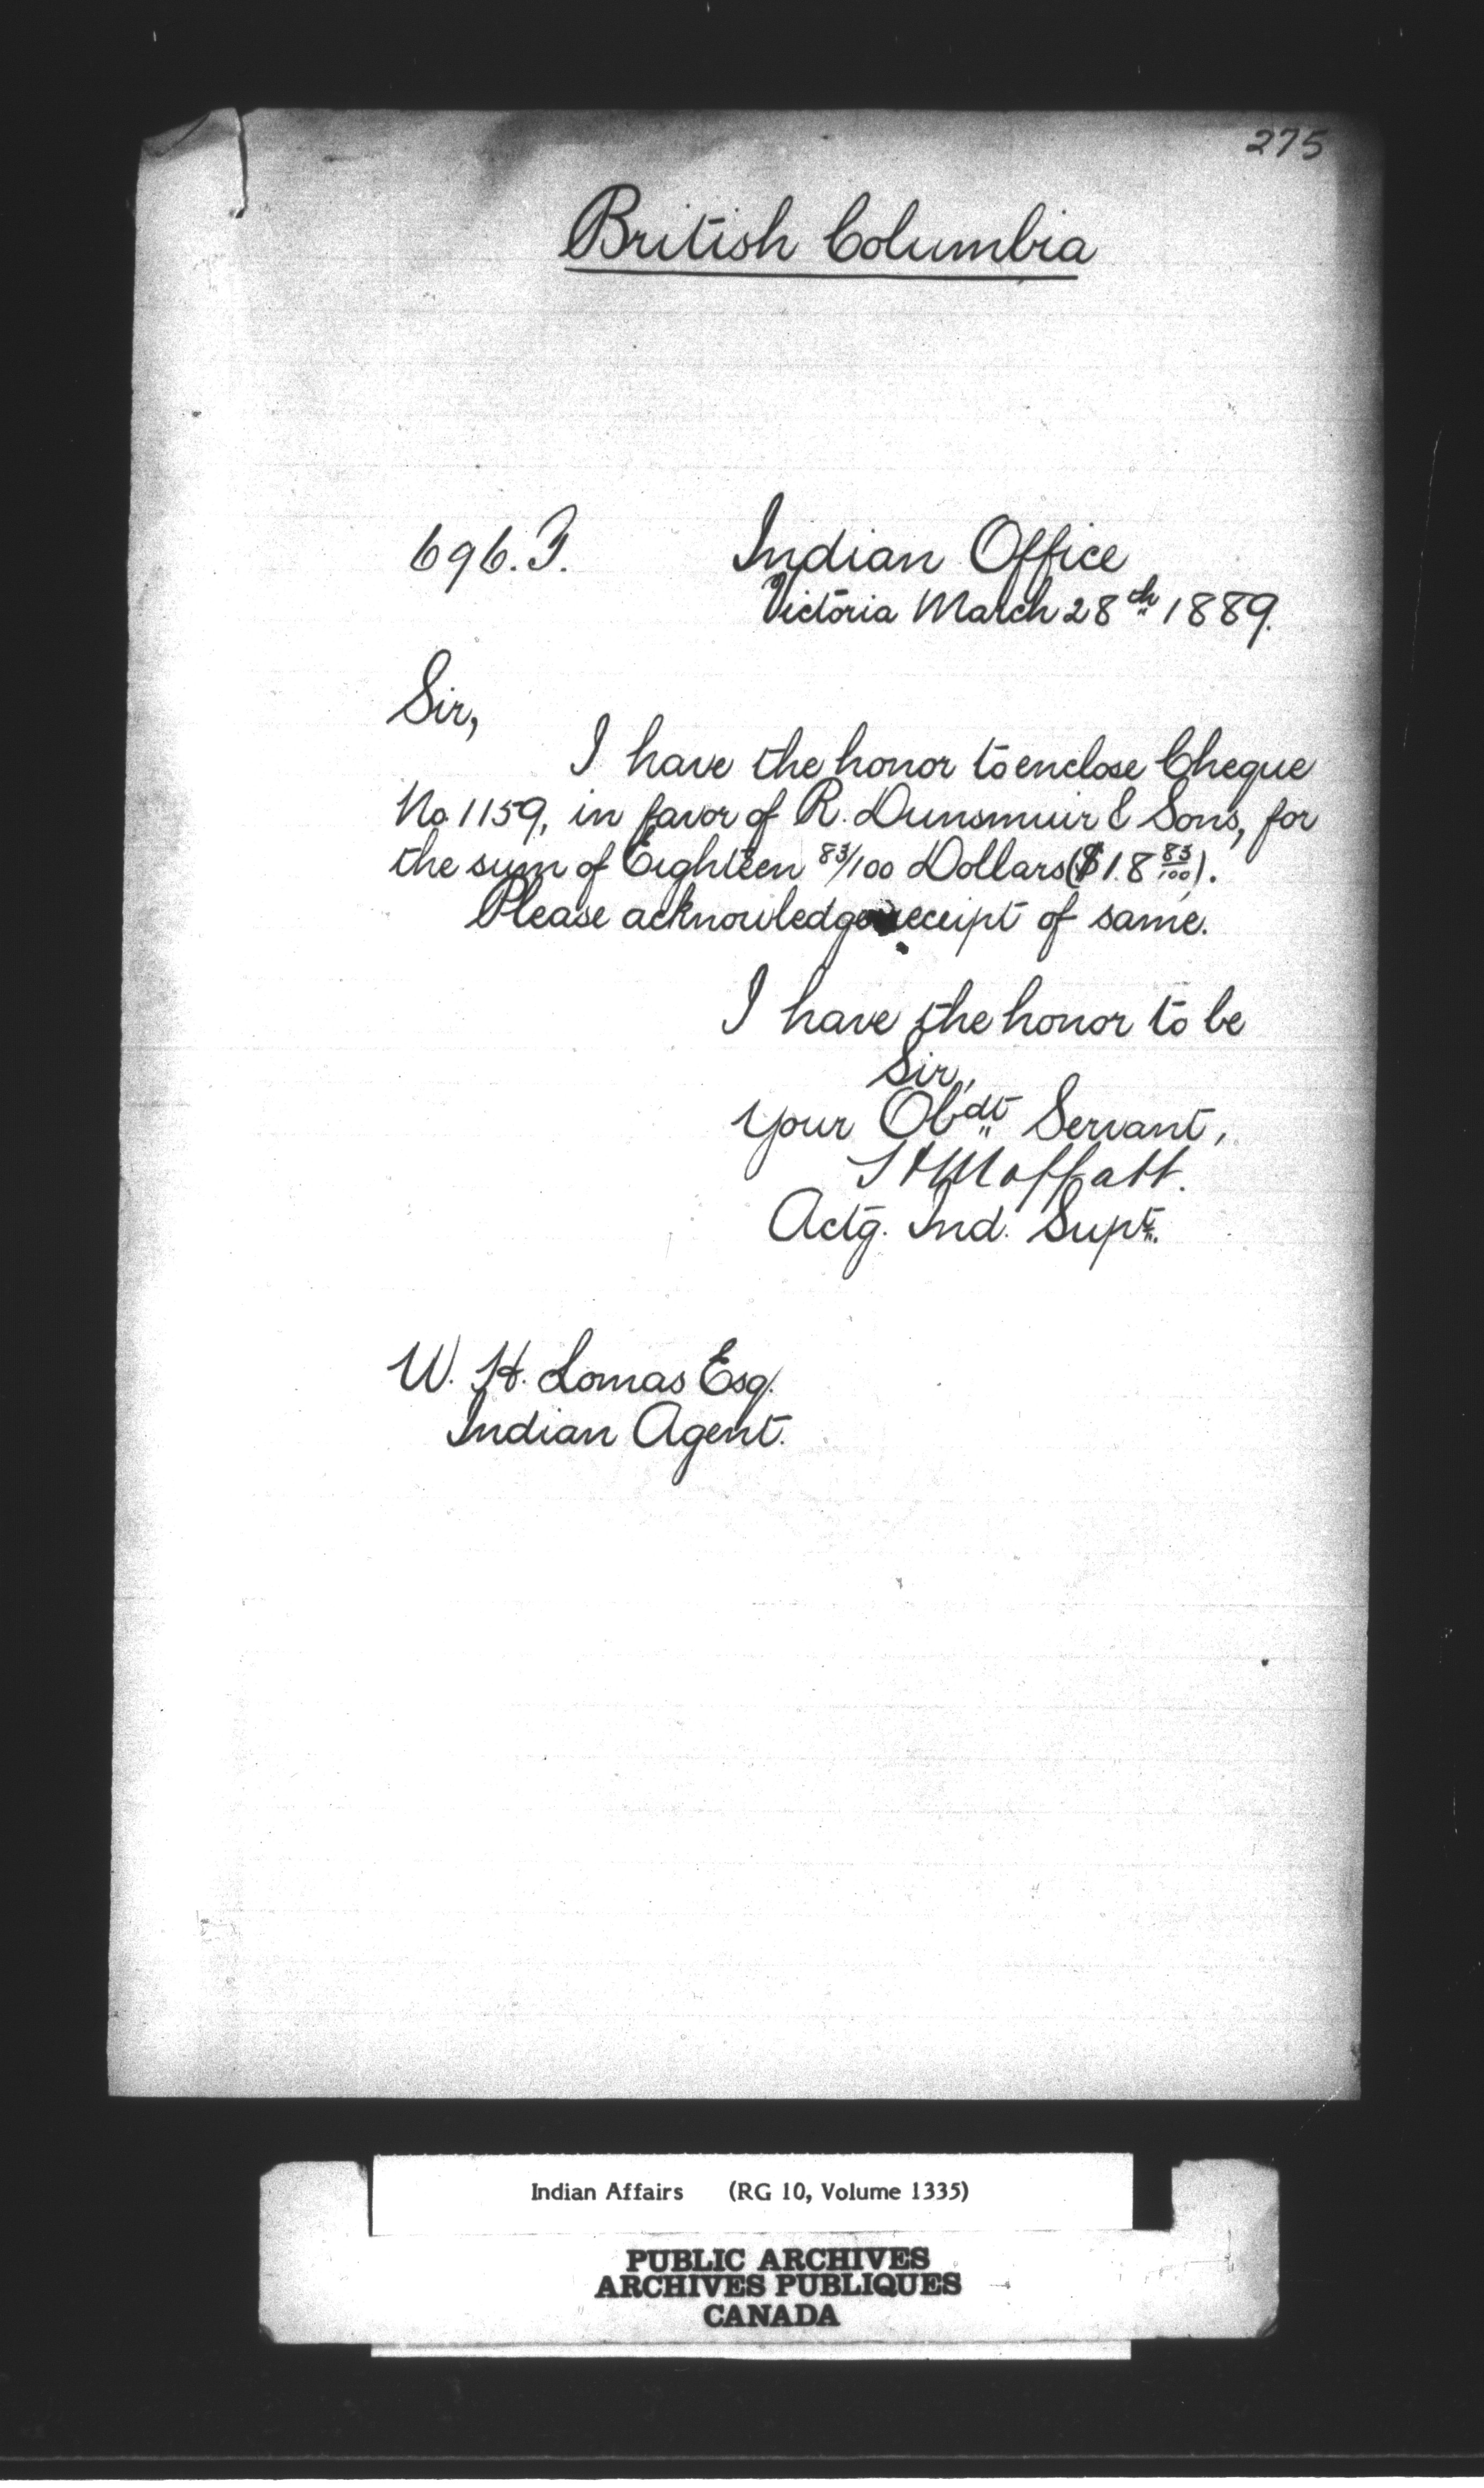 275
British Columbia
696.F.
Indian Office
Victoria March 28th 1889.
Sir,
I have the honor to enclose Cheque
No. 1159, in favor of R. Dunsmuir & Sons, for
the sum of Eighteen 83/100 Dollars ($18 83/100).
Please acknowledge receipt of same.
I have the honor to be
Sir,
Your Obdt Servant,
H Moffatt.
Actg. Ind. Supt.
W. H. Lomas Esq.
Indian Agent.
Indian Affairs (RG 10, Volume 1335)
PUBLIC ARCHIVES
ARCHIVES PUBLIQUES
CANADA